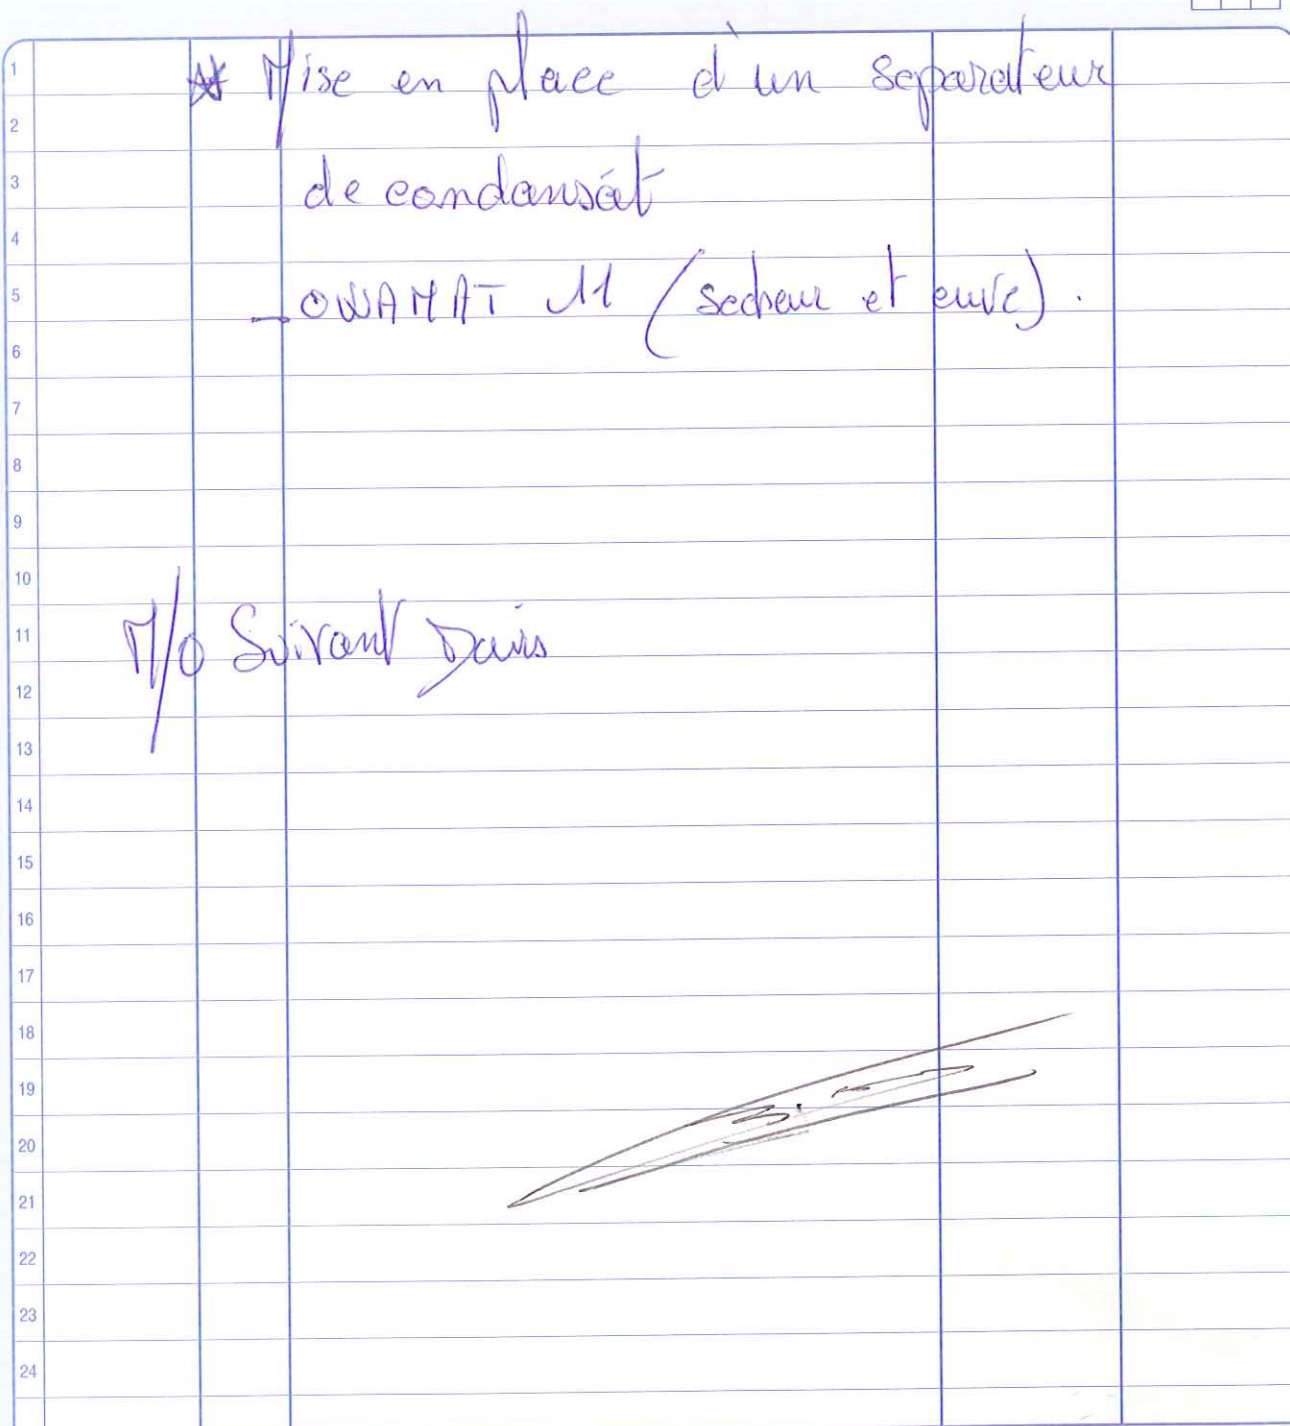 * Mise en place d'un separateur
de condansat
- OWAMAT 11 (secheur et cuve).
M/O Suivant Davis
1
2
3
4
5
6
7
8
9
10
11
12
13
14
15
16
17
18
19
20
21
22
23
24